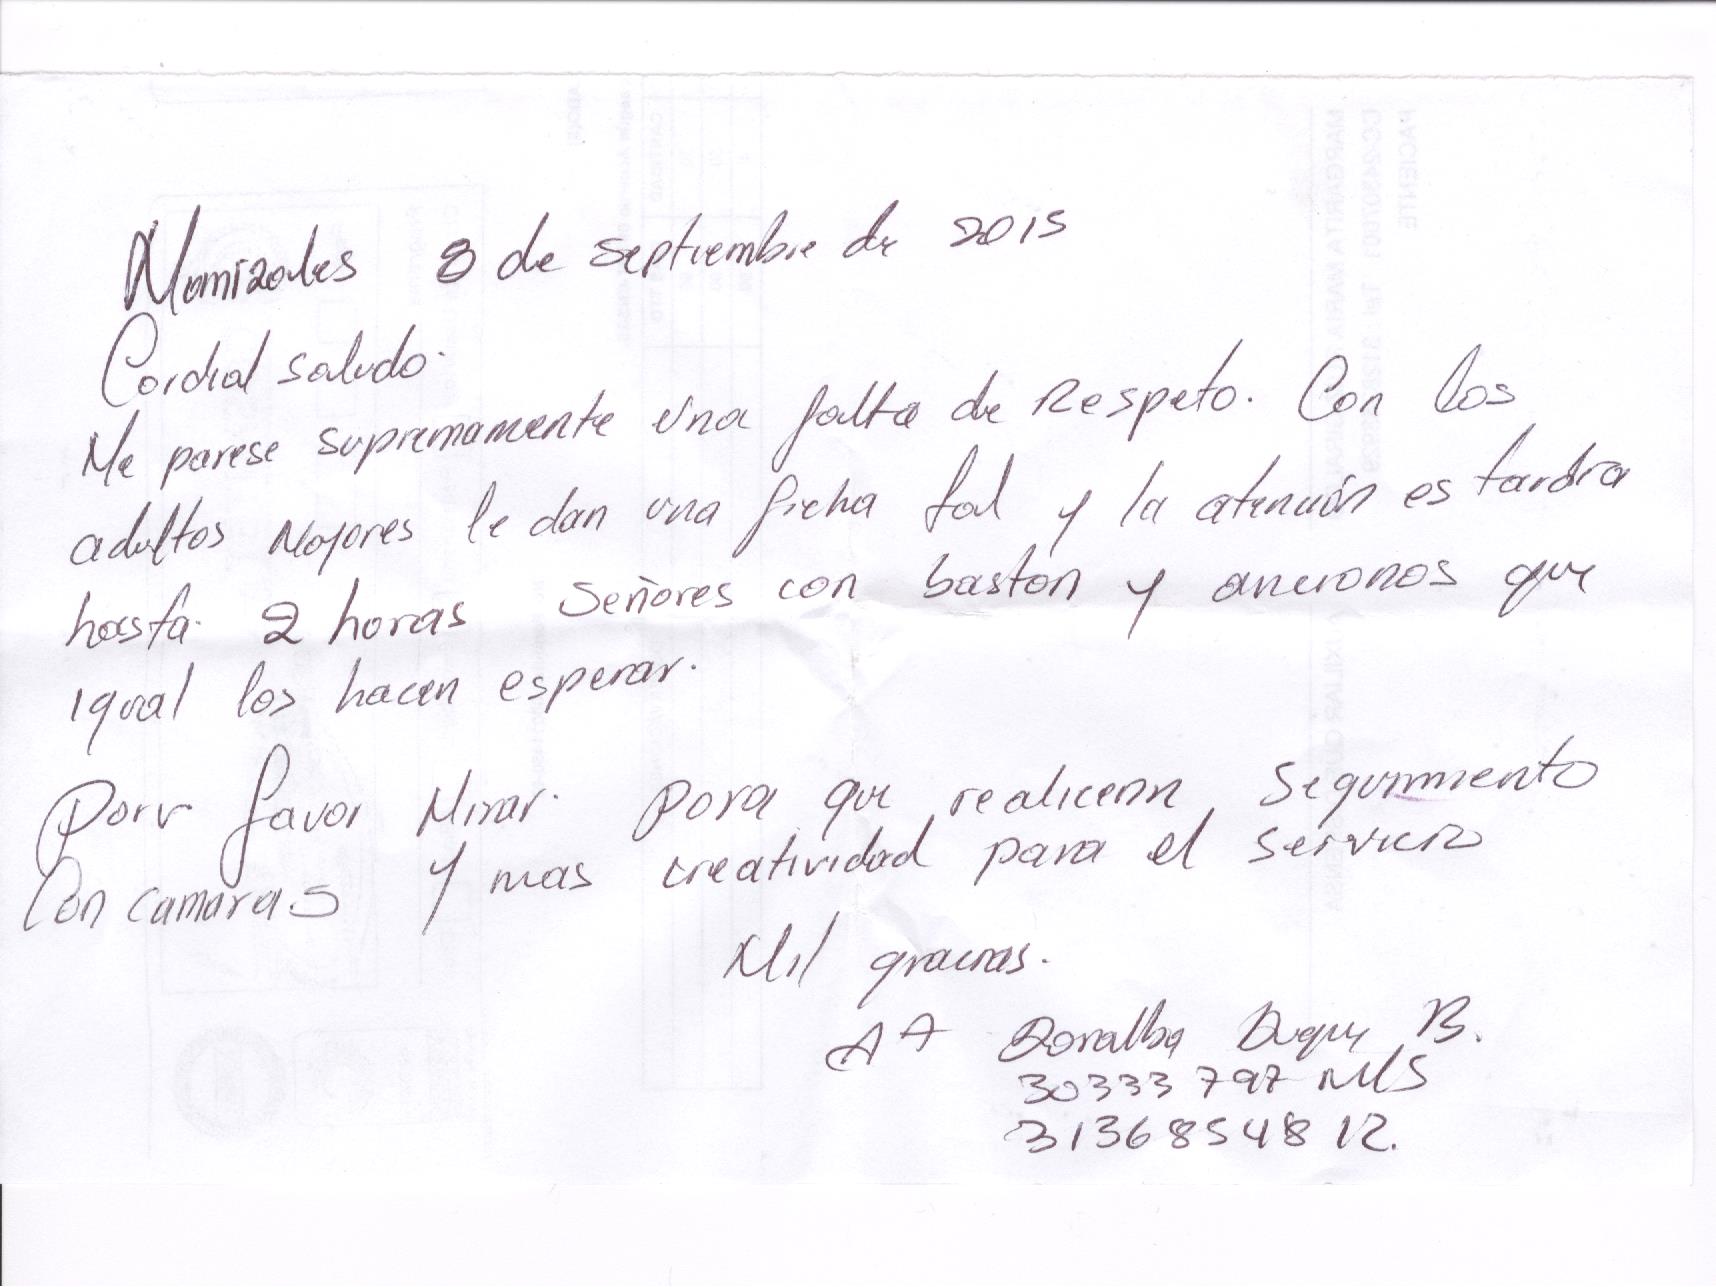 Manizales 8 de septiembre de 2015
Cordial saludo.
Me parese supremamente una falta de Respeto. Con los
adultos Mayores le dan una ficha tal y la atención es tardia
hasta 2 horas Señores con baston y ancianos que
igual los hacen esperar.
Por favor Mirar. para que realicen seguimiento
Con camaras y mas creatividad para el servicio
Mil gracias.
At Doralba Duque B.
30333797 Mls
3136854812.
PACIENTE
MARGARITA MARIA
CANTIDAD